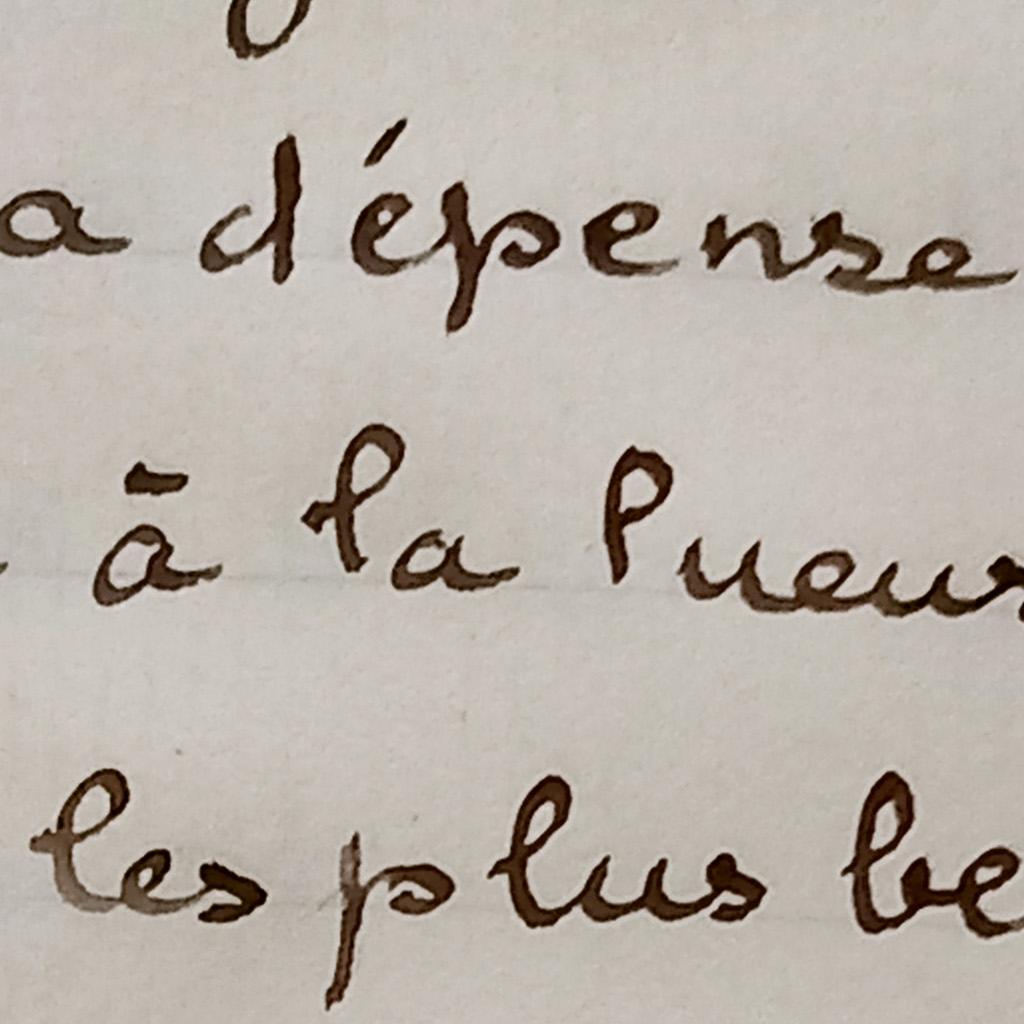 a dépense
à la lueur
les plus be